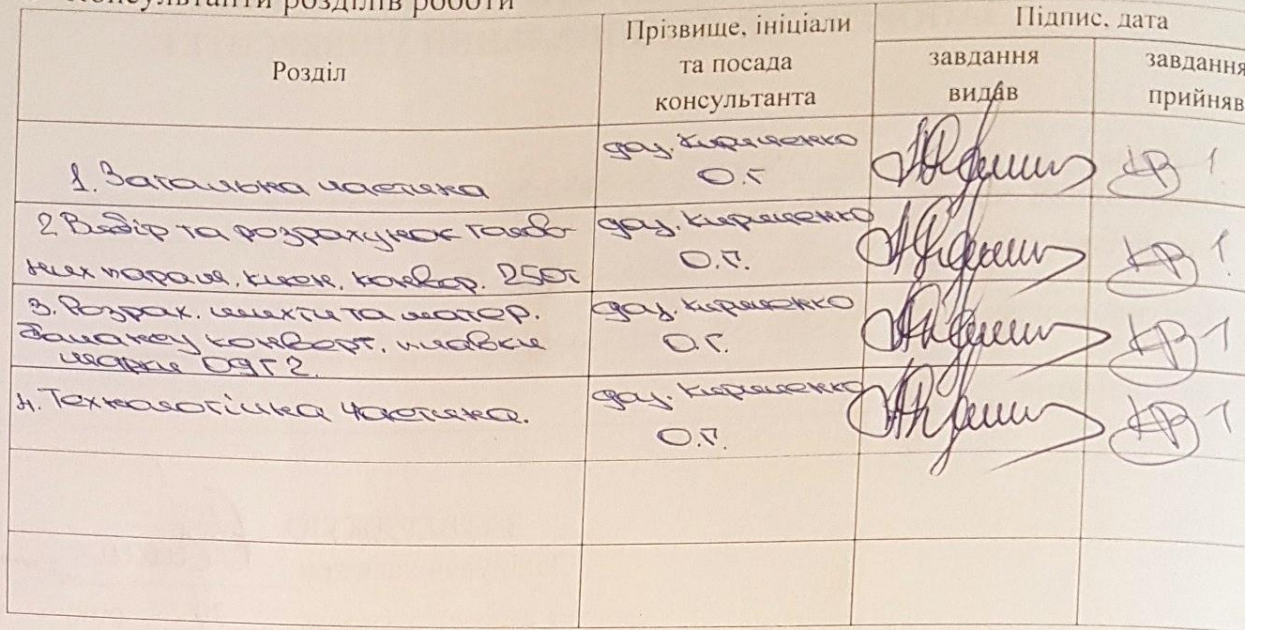 Консультанти розділів роботи
Розділ
Прізвище, ініціали
та посада
консультанта
Підпис, дата
завдання
видав
завдання
прийняв
1. Загальна частина
доц. Кириченко
О.Г.
2. Вибір та розрахунок голов-
них парам. кисн. конвер. 250т
доц. Кириченко
О.Г.
3. Розрах. шихти та матер.
балансу конверт. плавки
марки 09Г2.
доц. Кириченко
О.Г.
4. Технологічна частина.
доц. Кириченко
О.Г.